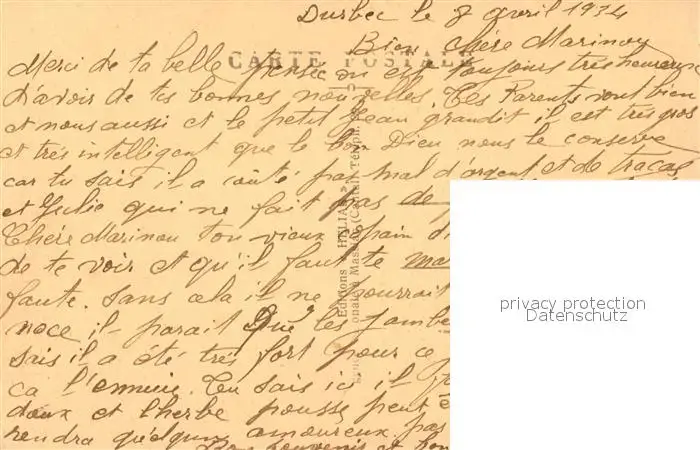 Durbec le 8 avril 1934
Bien chère Marinou
CARTE POSTALE
Merci de ta belle pensée on est toujours très heureux
d'avoir de tes bonnes nouvelles. Tes Parents vont bien
et nous aussi et le petit Jean grandit il est très gros
et très intelligent que le bon Dieu nous le conserve
car tu sais il a coûté pas mal d'argent et de tracas
et Julie qui ne fait pas de
Chère Marinou ton vieux
de te voir et qu'il faut te
faute. Sans cela il ne pourrait
noce il parait que les jambe
sais il a été très fort pour ce
ça l'ennuie. Tu sais ici il
doux et l'herbe pousse peut
rendra quelqun amoureux pas
souvenirs et bon
Editions HELIA
privacy protection
Datenschutz